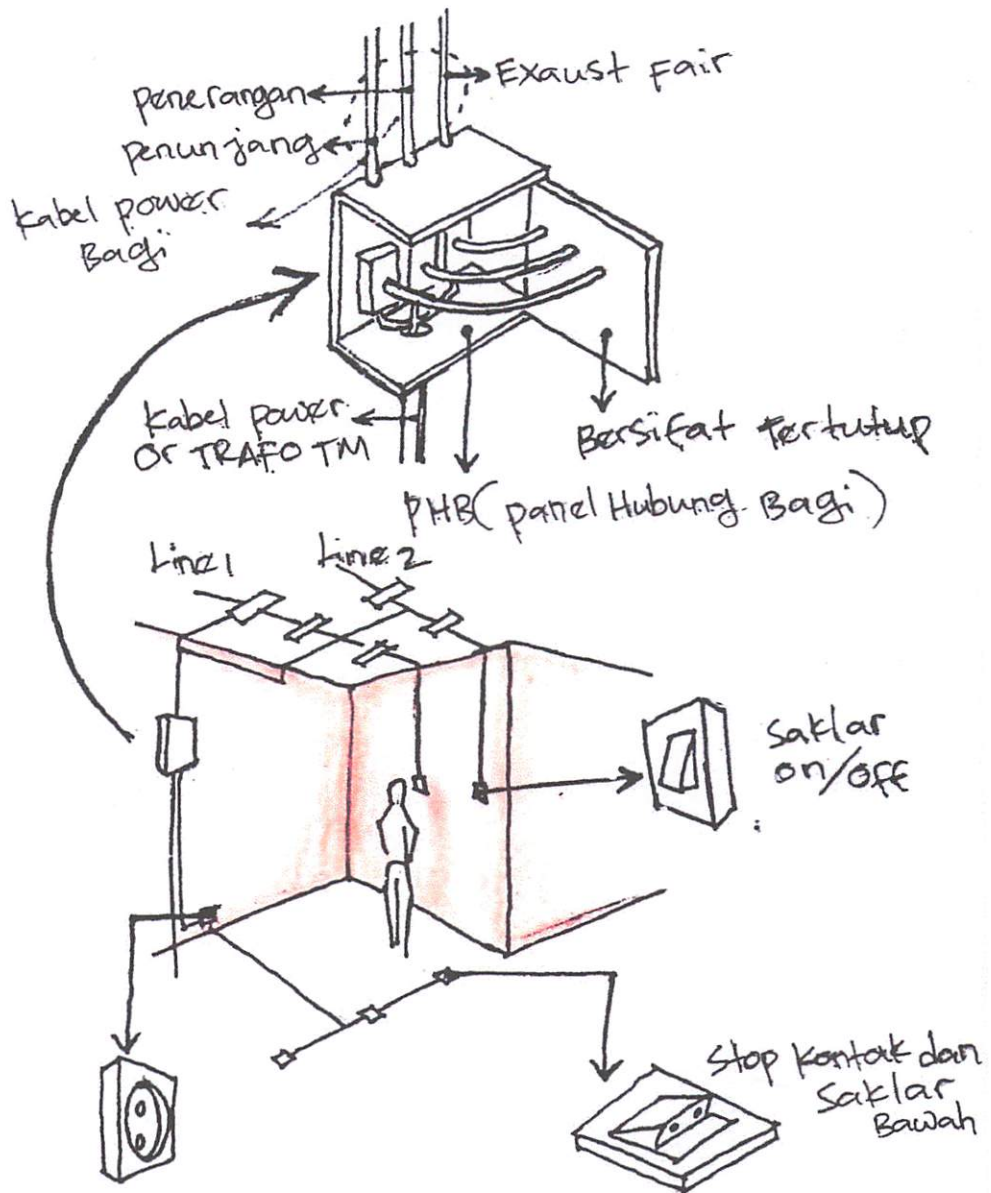 penerangan
Exaust Fair
penunjang
Kabel power
Bagi
Kabel power
or TRAFO TM
Bersifat tertutup
PHB (panel Hubung Bagi)
Line 1
Line 2
Saklar
on/off
Stop Kontak dan
Saklar
Bawah